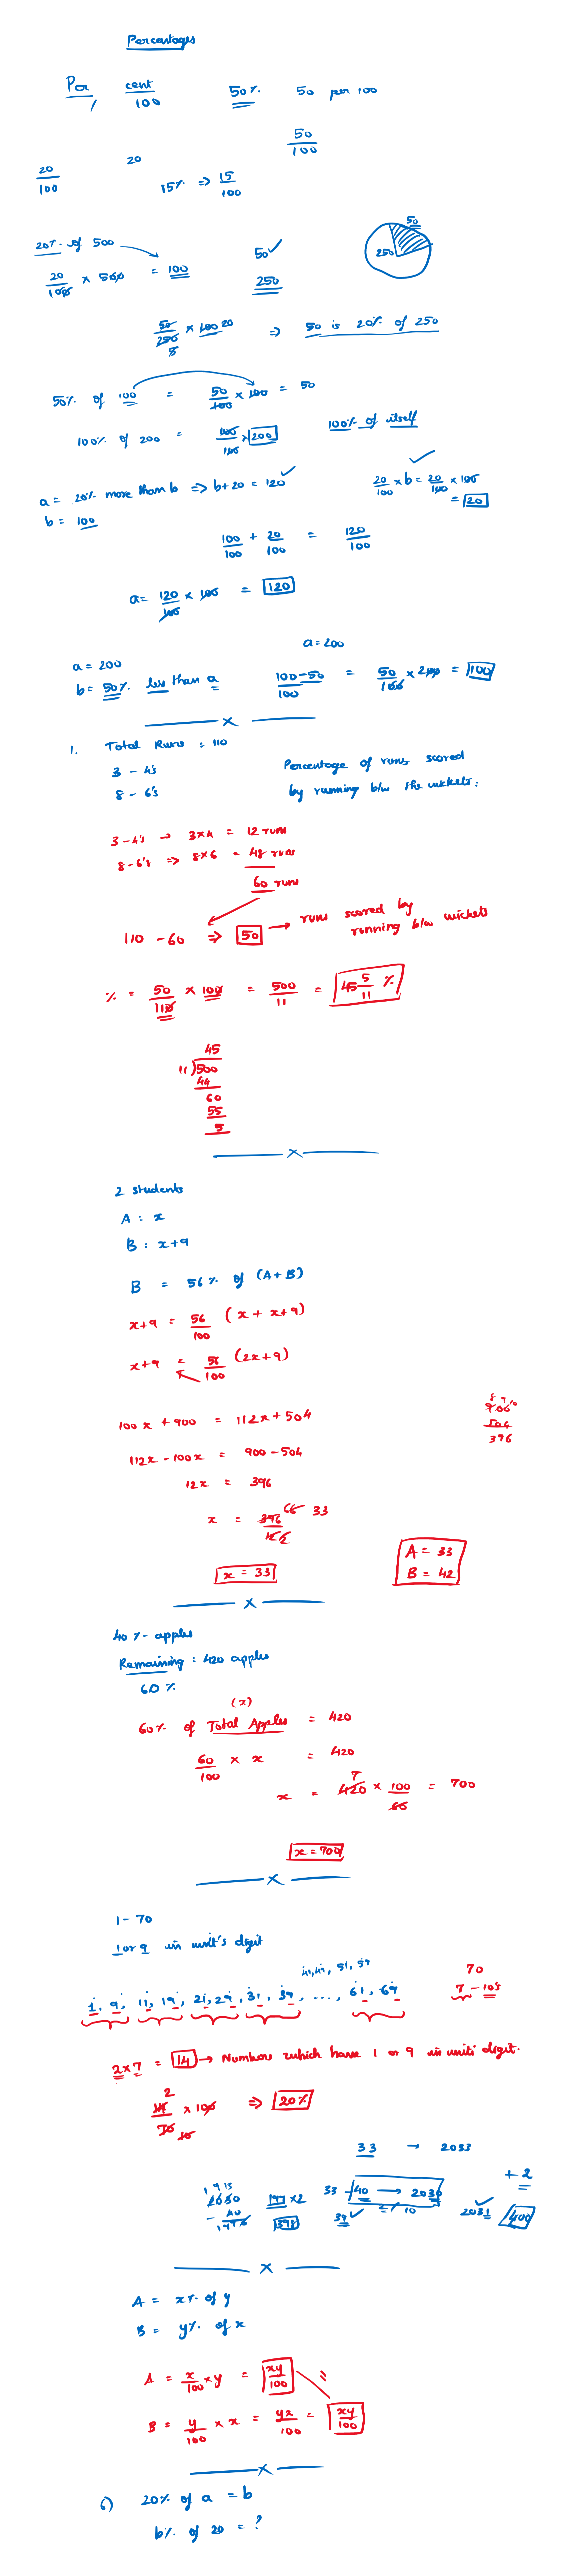 Percentages
Per cent/100 50% 50 per 100
50/100
20/100 20 15% => 15/100
20% of 500 50 ✓ 50
20/100 × 500 = 100 250 250
50/250 × 100 20 => 50 is 20% of 250
5
50% of 100 = 50/100 × 100 = 50
100% of 200 = 100/100 × 200 100% of itself
a = 20% more than b => b+20 = 120 ✓ 20/100 × b = 20/100 × 100
b = 100 = 20
100/100 + 20/100 = 120/100
a = 120/100 × 100 = 120
a = 200
a = 200
b = 50% less than a 100-50/100 = 50/100 × 200 = 100
x
1. Total Runs = 110
3 - 4's Percentage of runs scored
8 - 6's by running b/w the wickets.
3-4's → 3×4 = 12 runs
8-6's => 8×6 = 48 runs
60 runs
110 - 60 => 50 → runs scored by
running b/w wickets
% = 50/110 × 100 = 500/11 = 45 5/11 %
45
11)500
44
60
55
5
x
2 students
A : x
B : x+9
B = 56% of (A+B)
x+9 = 56/100 (x + x+9)
x+9 = 56/100 (2x+9)
100x + 900 = 112x + 504
8 9 10
900
504
396
112x - 100x = 900 - 504
12x = 396
x = 396/12 66 33
x = 33
A = 33
B = 42
x
40% - apples
Remaining : 420 apples
60%
(x)
60% of Total Apples = 420
60/100 × x = 420
x = 420 × 100/60 = 700
7
x = 700
x
1 - 70
1 or 9 in unit's digit
41, 49, 51, 59
1, 9, 11, 19, 21, 29, 31, 39, ...., 61, 69
70
7 - 10's
2×7 = 14 → Number which have 1 or 9 in unit digit.
2
14/70 × 100 => 20%
10
33 → 2033
+2
2030
- 40
199 × 2
398
33 - 40 → 2030
39 ✓
2031 ✓
400
x
A = x% of y
B = y% of x
A = x/100 × y = xy/100
B = y/100 × x = yx/100 = xy/100
x
6) 20% of a = b
b% of 20 = ?